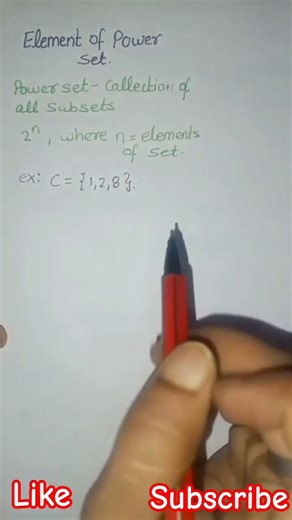 Element of Power
Set.
Power set - Collection of
all Subsets
2ⁿ, where n = elements
of set.
ex: C = {1,2,8}.
Like
Subscribe